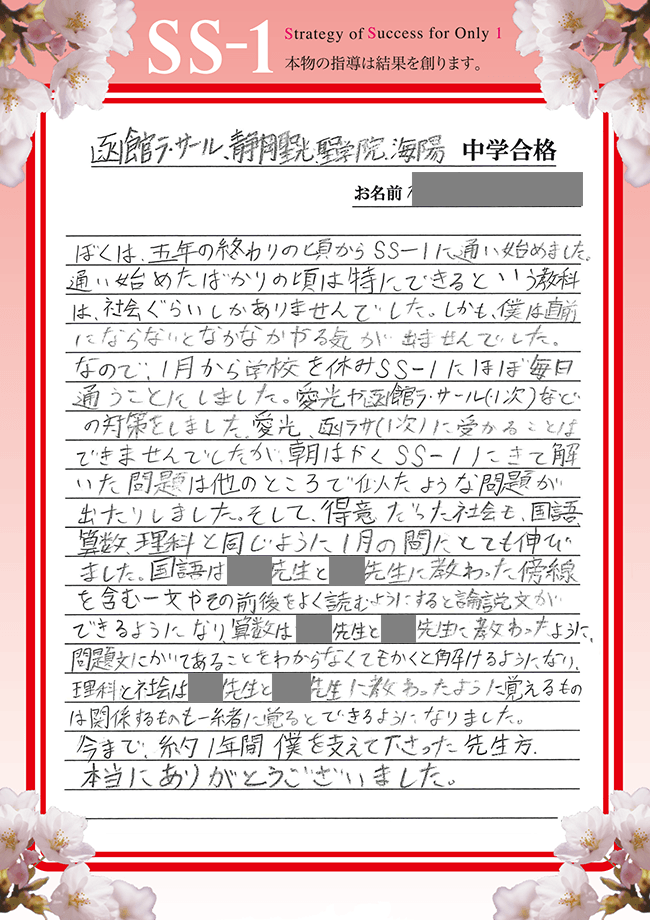 SS-1
Strategy of Success for Only 1
本物の指導は結果を創ります。
函館ラ・サール、静岡聖光、聖学院、海陽 中学合格
お名前
ぼくは、五年の終わりの頃からSS-1に通い始めました。
通い始めたばかりの頃は特にできるという教科
は、社会ぐらいしかありませんでした。しかも、僕は直前
にならないとなかなかやる気が出ませんでした。
なので、1月から学校を休みSS-1にほぼ毎日
通うことにしました。愛光や函館ラ・サール(1次)など
の対策をしました。愛光、函ラサ(1次)に受かることは
できませんでしたが、朝はやくSS-1にきて解
いた問題は他のところで似たような問題が
出たりしました。そして、得意だった社会も、国語、
算数、理科と同じように1月の間にとても伸び
ました。国語は 先生と 先生に教わった傍線
を含む一文やその前後をよく読むようにすると論説文が
できるようになり、算数は 先生と 先生に教わったように、
問題文にかいてあることをわからなくてもかくと解けるようになり、
理科と社会は 先生と 先生に教わったように覚えるもの
は関係するものも一緒に覚るとできるようになりました。
今まで、約1年間僕を支えて下さった先生方、
本当にありがとうございました。